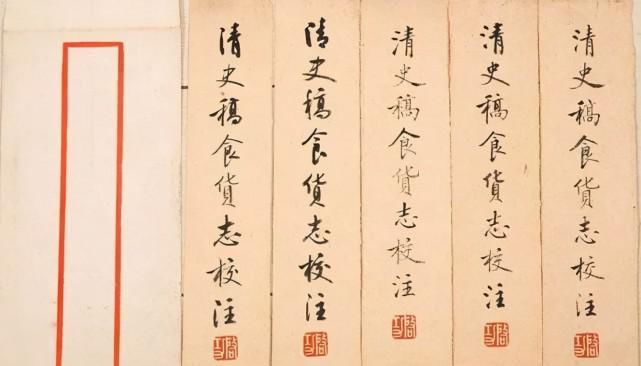 清史稿食货志校注
清史稿食货志校注
清史稿食货志校注
清史稿食货志校注
清史稿食货志校注